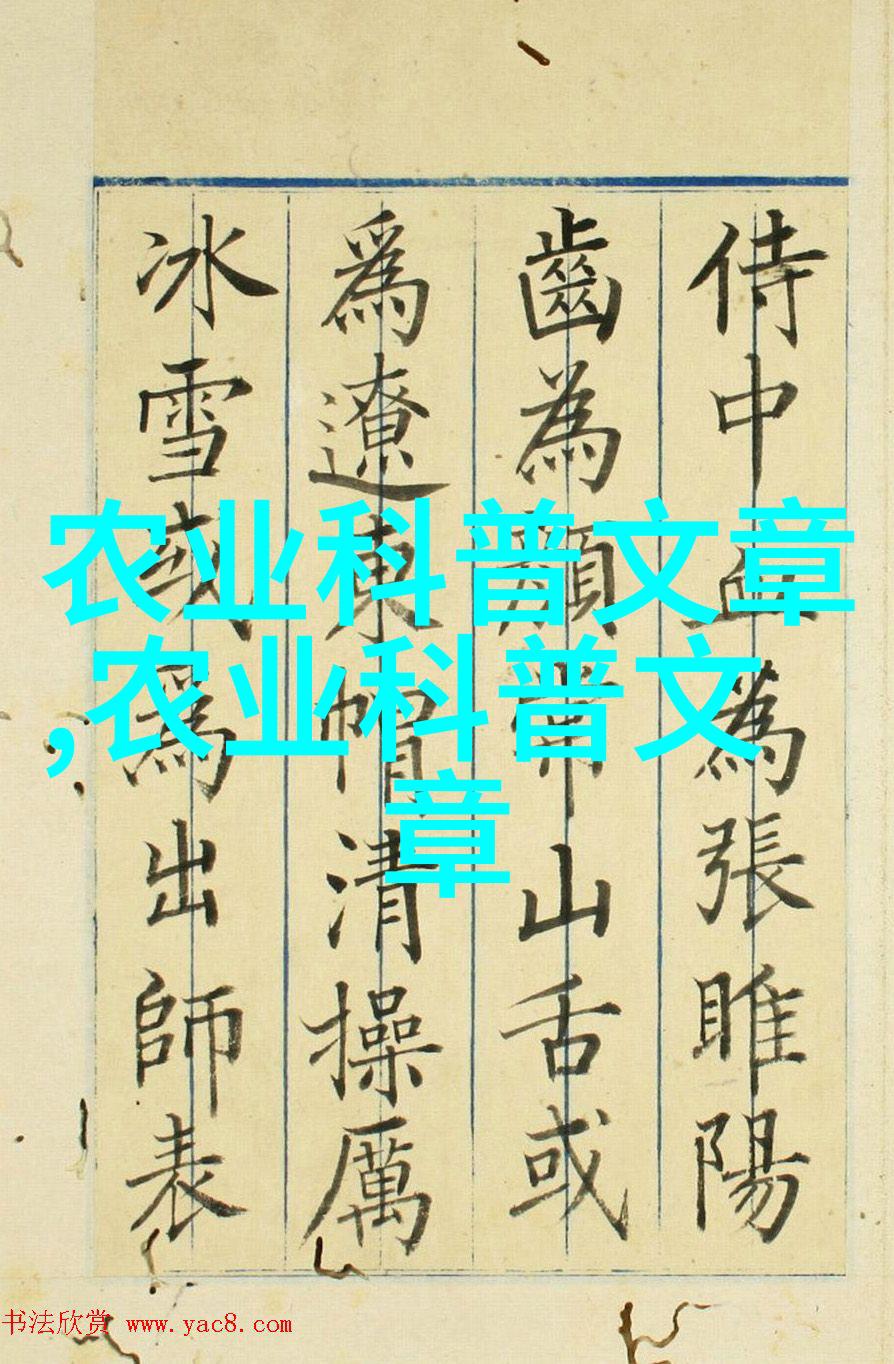 侍中血為張睢陽
齒為顏常山舌或
爲遼東帽清操厲
冰雪或爲出師表
农业科普文章
,农业科普文
章
书法欣赏 www.yac8.com